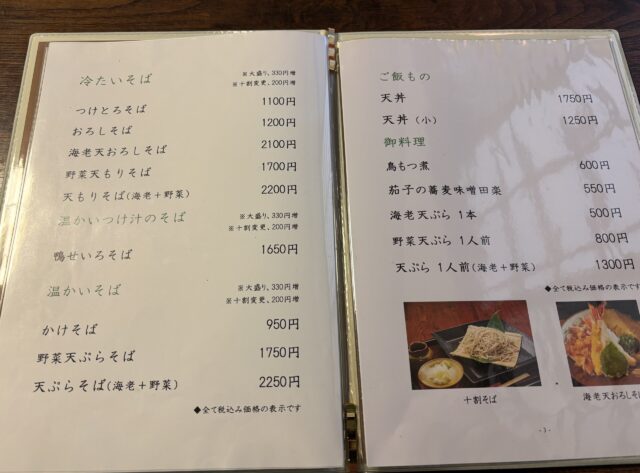 冷たいそば
※大盛り、330円増
※十割変更、200円増
つけとろそば 1100円
おろしそば 1200円
海老天おろしそば 2100円
野菜天もりそば 1700円
天もりそば(海老+野菜) 2200円
温かいつけ汁のそば
※大盛り、330円増
※十割変更、200円増
鴨せいろそば 1650円
温かいそば
※大盛り、330円増
※十割変更、200円増
かけそば 950円
野菜天ぷらそば 1750円
天ぷらそば(海老+野菜) 2250円
◆全て税込み価格の表示です
ご飯もの
天丼 1750円
天丼 (小) 1250円
御料理
鳥もつ煮 600円
茄子の蕎麦味噌田楽 550円
海老天ぷら 1本 500円
野菜天ぷら 1人前 800円
天ぷら 1人前(海老+野菜) 1300円
◆全て税込み価格の表示です
十割そば
海老天おろしそ
-3-